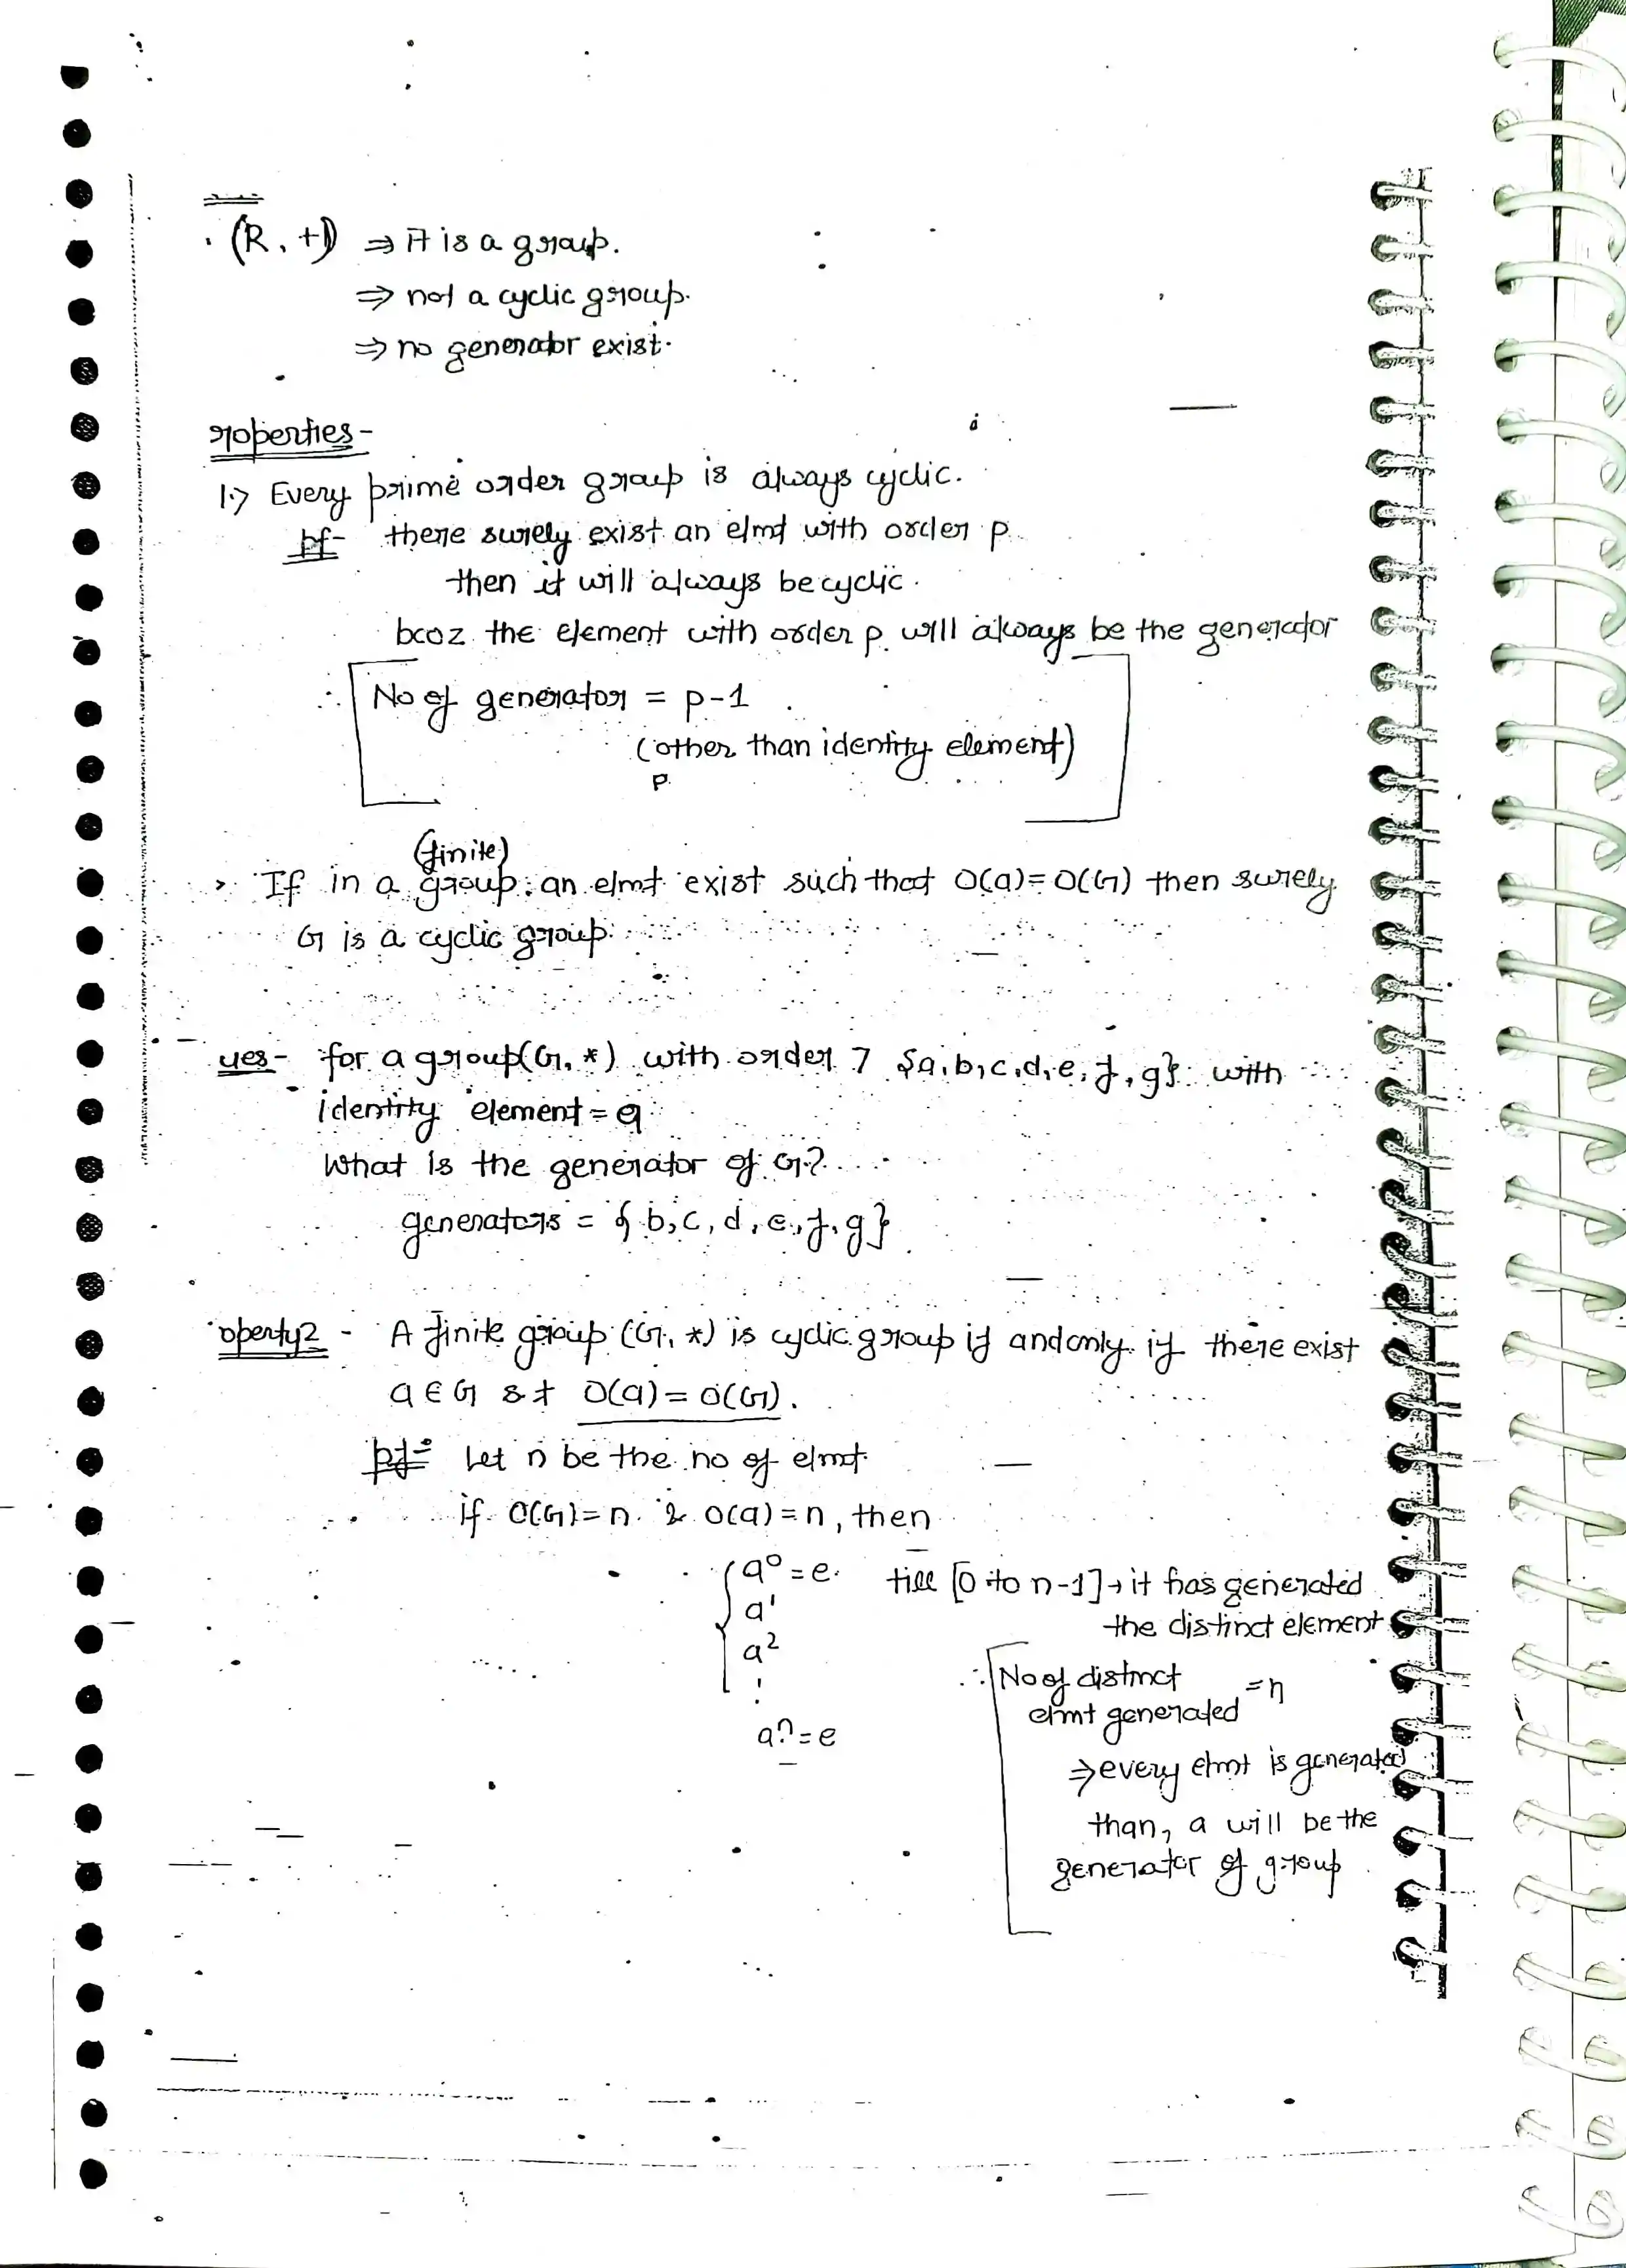 . (R, +) ⇒ It is a group.
⇒ not a cyclic group.
⇒ no generator exist.
roperties -
1.> Every prime order group is always cyclic.
pf- there surely exist an elmt with order p.
then it will always be cyclic.
bcoz the element with order p will always be the generator
∴ No of generator = p-1
(other than identity element)
p.
(finite)
> If in a group, an elmt exist such that O(a)=O(G) then surely
G is a cyclic group.
ues- for a group(G, *) with order 7 {a,b,c,d,e,f,g} with
identity element = a
What is the generator of G?
generators = {b,c,d,e,f,g}
operty2 - A finite group (G, *) is cyclic group if and only if there exist
a ∈ G s.t O(a) = O(G).
pf- Let n be the no of elmt.
if O(G)=n & O(a)=n, then
a⁰ = e. till [0 to n-1] → it has generated
a¹ the distinct element
a²
∴ No of distinct
elmt generated = n
aⁿ = e
⇒ every elmt is generated
than, a will be the
generator of group